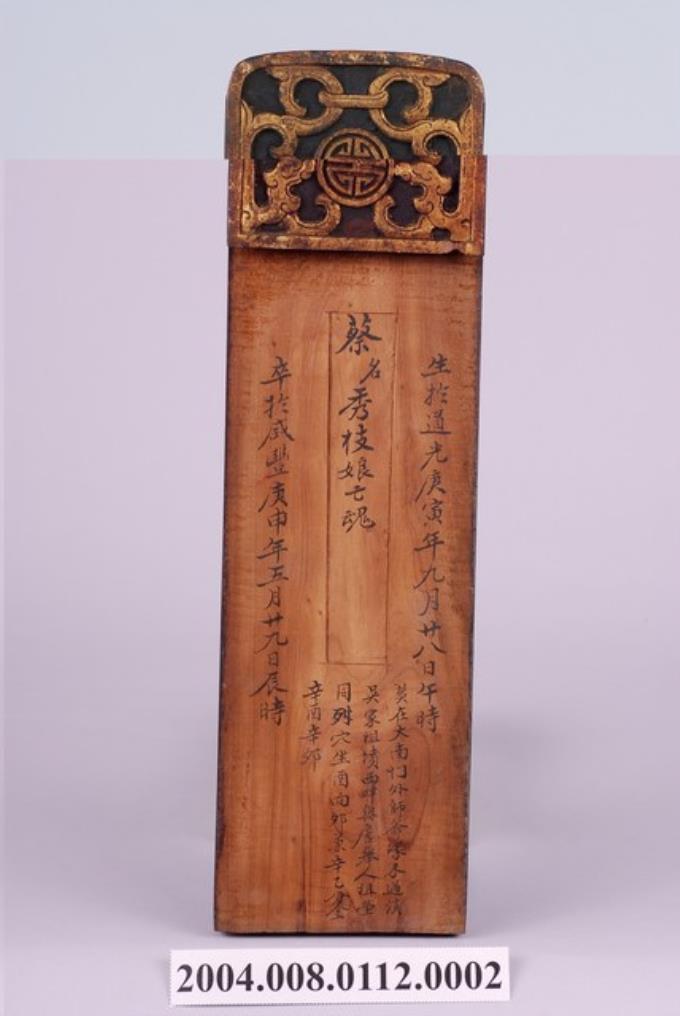 生於道光庚寅年九月廿八日午時
蔡名秀枝娘亡魂
卒於咸豐庚申年五月廿九日辰時
葬在大南門外師爺塚
吳家祖墳西畔與盧舉人祖塋
同列穴坐酉向卯兼辛乙
辛酉辛卯
2004.008.0112.0002